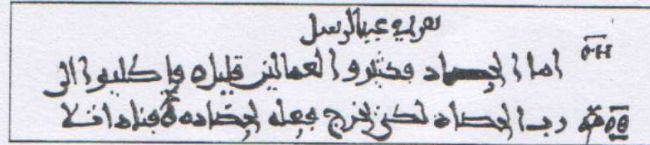 عيد الرسل
اما الحصاد فكثير والعمالين قليله فاطلبوا الى
رب الحصاد لكى يخرج فعله لحصاده